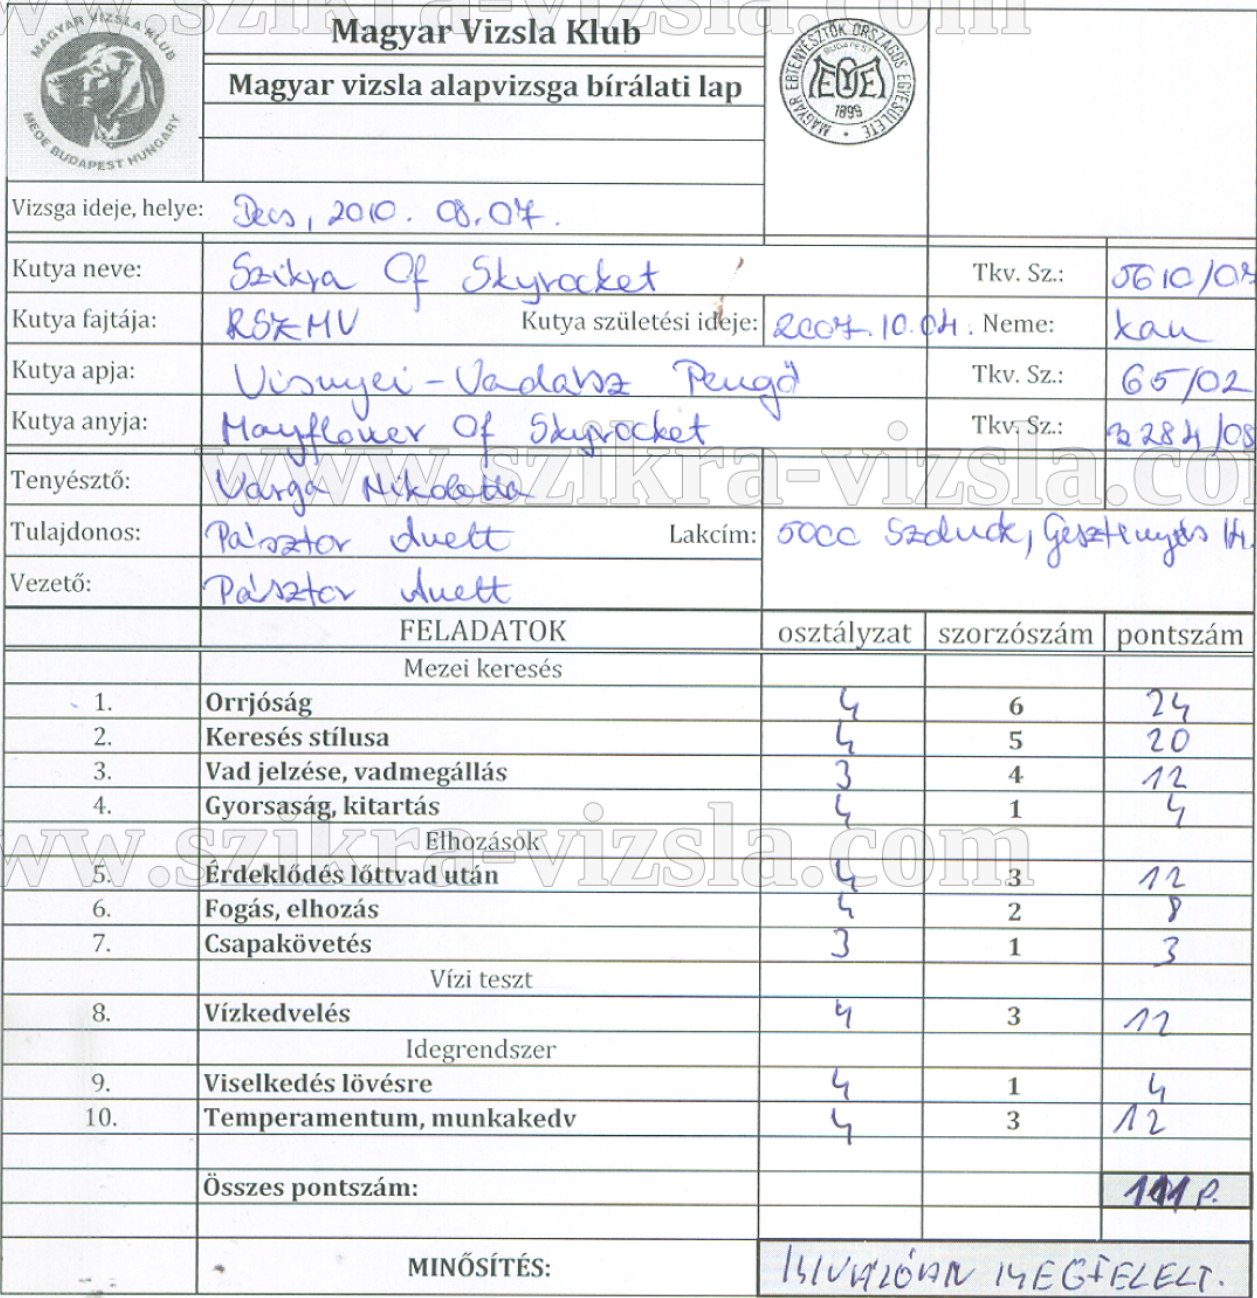 www.szikra-vizsla.com
MAGYAR VIZSLA KLUB
MEOE BUDAPEST HUNGARY
Magyar Vizsla Klub
Magyar vizsla alapvizsga bírálati lap
MAGYAR EBTENYÉSZTŐK ORSZÁGOS EGYESÜLETE
BUDAPEST
MEOE
1899
Vizsga ideje, helye: Decs, 2010. 08.07.
Kutya neve: Szikra Of Skyrocket Tkv. Sz.: 5610/07
Kutya fajtája: RSZMV Kutya születési ideje: 2007.10.04. Neme: kan
Kutya apja: Visnyei-Vadász Pengő Tkv. Sz.: 65/02
Kutya anyja: Mayflower Of Skyrocket Tkv. Sz.: 3284/08
www.szikra-vizsla.com
Tenyésztő: Varga Nikoletta
Tulajdonos: Pásztor Anett Lakcím: 5000 Szolnok, Gesztenyés
Vezető: Pásztor Anett
FELADATOK osztályzat szorzószám pontszám
Mezei keresés
1. Orrjóság 4 6 24
2. Keresés stílusa 4 5 20
3. Vad jelzése, vadmegállás 3 4 12
4. Gyorsaság, kitartás 4 1 4
www.szikra-vizsla.com
Elhozások
5. Érdeklődés lőttvad után 4 3 12
6. Fogás, elhozás 4 2 8
7. Csapakövetés 3 1 3
Vízi teszt
8. Vízkedvelés 4 3 12
Idegrendszer
9. Viselkedés lövésre 4 1 4
10. Temperamentum, munkakedv 4 3 12
Összes pontszám: 111 p.
MINŐSÍTÉS: KIVÁLÓAN MEGFELELT.